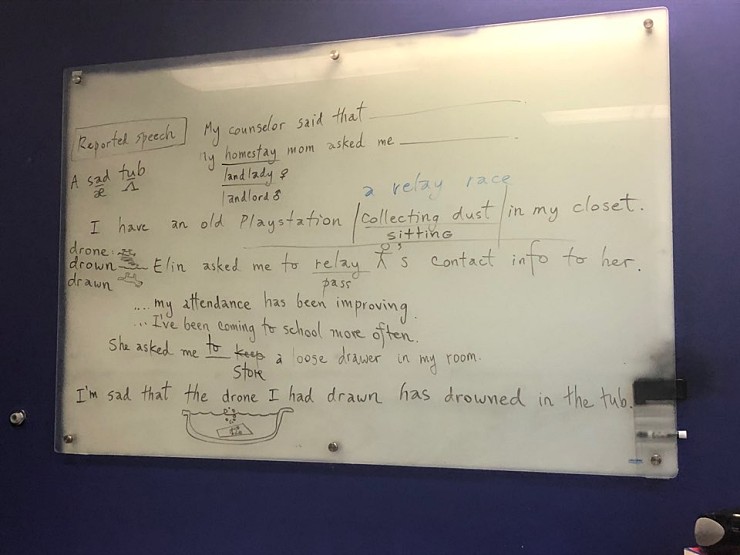 Reported speech
My counselor said that
my homestay mom asked me
landlady ♀
landlord ♂
A sad tub
æ Λ
a relay race
I have an old Playstation / collecting dust / in my closet.
sitting
drone:
drown
drawn
Elin asked me to relay 's contact info to her.
pass
.... my attendance has been improving.
... I've been coming to school more often.
She asked me to keep a loose drawer in my room.
store
I'm sad that the drone I had drawn has drowned in the tub.